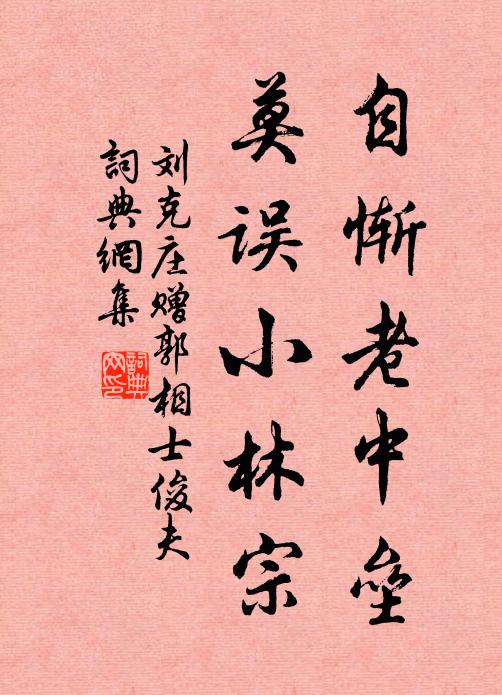 自惭老中垒
莫误小林宗
刘克庄赠郭相士俊夫
詞典網集
詞典網印